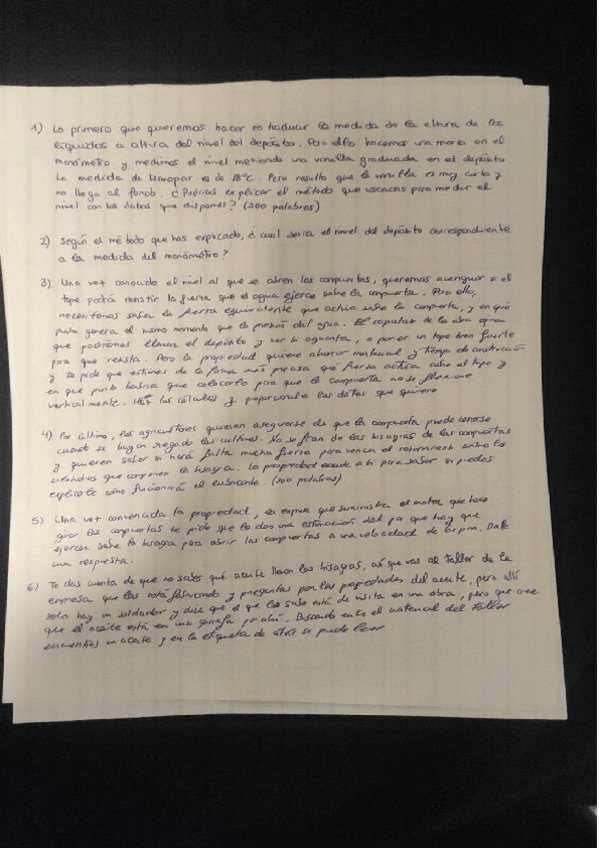 1) Lo primero que queremos hacer es traducir la medida de la altura de los
líquidos a altura del nivel del depósito. Para ello hacemos una marca en el
manómetro y medimos el nivel metiendo una varilla graduada en el depósito
La medida de termopar es de 18°C. Pero resulta que la varilla es muy corta y
no llega al fondo. ¿Podrías explicar el método que usarías para medir el
nivel con los datos que dispones? (200 palabras)
2) Según el método que has explicado, ¿cual sería el nivel del depósito correspondiente
a la medida del manómetro?
3) Una vez conocido el nivel al que se abren las compuertas, queremos averiguar si el
tope podrá resistir la fuerza que el agua ejerce sobre la compuerta. Para ello,
necesitamos saber la fuerza equivalente que actúa sobre la compuerta, y en qué
punto genera el mismo momento que la presión del agua. El capataz de la obra opina
que podríamos llenar el depósito y ver si aguanta, o poner un tope bien fuerte
para que resista. Pero la propiedad quiere ahorrar material y tiempo de construcción
y te pide que estimes de la forma más precisa qué fuerza actúa sobre el tope y
en qué punto habría que colocarlo para que la compuerta no se flexione
verticalmente. Haz los cálculos y proporciona los datos que quiere
4) Por último, los agricultores quieren asegurarse de que la compuerta puede cerrarse
cuando se hayan regado los cultivos. No se fían de las bisagras de las compuertas
y quieren saber si hará falta mucha fuerza para vencer el rozamiento entre los
cilindros que componen la bisagra. La propiedad acude a ti para saber si puedes
explicarle como funcionará el lubricante. (300 palabras)
5) Una vez convencida la propiedad, la empresa que suministra el motor que hace
girar las compuertas te pide que le des una estimación del par que hay que
ejercer sobre la bisagra para abrir las compuertas a una velocidad de 6 rpm. Dale
una respuesta.
6) Te das cuenta de que no sabes qué aceite llevan las bisagras, así que vas al taller de la
empresa que las está fabricando y preguntas por las propiedades del aceite, pero allí
solo hay un soldador y dice que el que lo sabe está de visita en una obra, pero que cree
que el aceite está en una garrafa por ahí. Buscando entre el material del taller
encuentras un aceite y en la etiqueta de atrás se puede leer